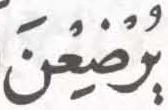 يُرْضِعْنَ